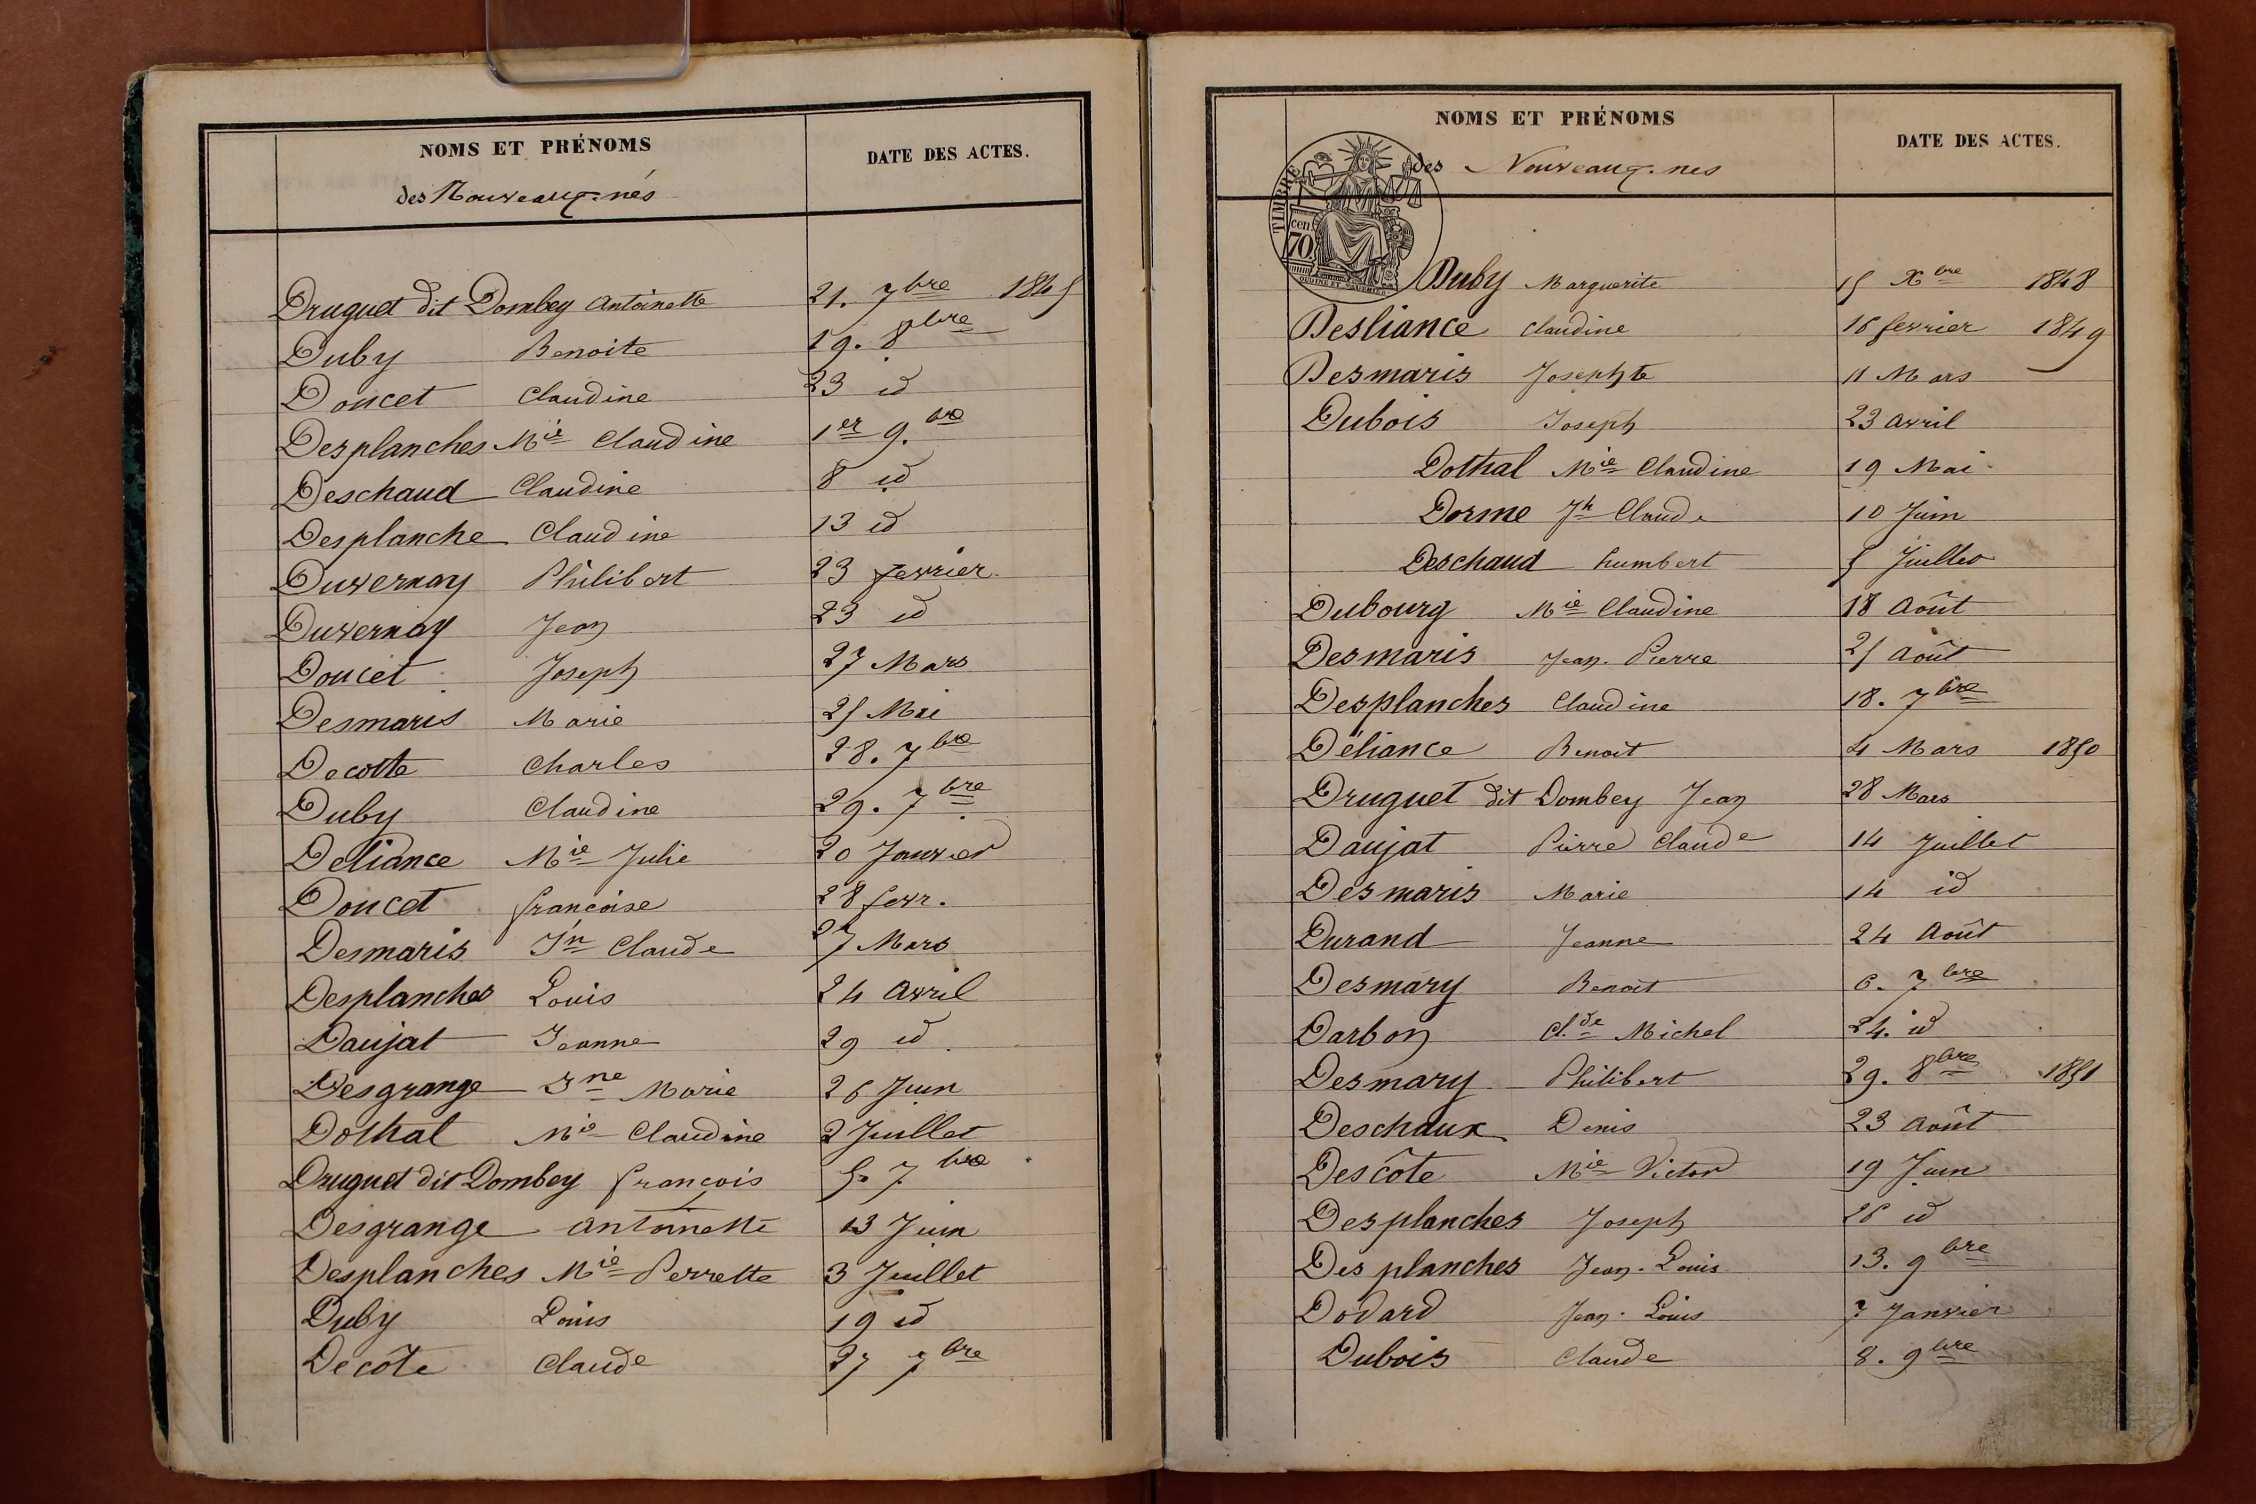 NOMS ET PRÉNOMS DATE DES ACTES.
des Nouveaux-nés
Druguet dit Dombey Antoinette 21. 7bre 1845
Duby Benoite 19. 8bre
Doucet Claudine 23 id
Desplanches Mie Claudine 1er 9.bre
Deschaud Claudine 8 id
Desplanche Claudine 13 id
Duvernay Philibert 23 fevrier
Duvernay Jean 23 id
Doucet Joseph 27 Mars
Desmaris Marie 25 Mai
Decotte Charles 28. 7bre
Duby Claudine 29. 7bre
Deliance Mie Julie 20 Janvier
Doucet françoise 28 fevr.
Desmaris Jn Claude 27 Mars
Desplanches Louis 24 Avril
Daujat Jeanne 29 id
Desgrange Jne Marie 26 Juin
Dothal Mie Claudine 2 Juillet
Druguet dit Dombey françois 5. 7bre
Desgrange Antoinette 13 Juin
Desplanches Mie Perrette 3 Juillet
Duby Louis 19 id
Decôte Claude 27 7bre
NOMS ET PRÉNOMS DATE DES ACTES.
des Nouveaux-nes
TIMBRE
cen.
70
Duby Marguerite 15 Xbre 1848
Desliance Claudine 16 fevrier 1849
Desmaris Josephte 11 Mars
Dubois Joseph 23 Avril
Dothal Mie Claudine 19 Mai
Dorme Jh Claude 10 Juin
Deschaud humbert 5 Juillet
Dubourg Mie Claudine 18 Août
Desmaris Jean-Pierre 25 Août
Desplanches Claudine 18. 7bre
Déliance Benoit 4 Mars 1850
Druguet dit Dombey Jean 28 Mars
Daujat Pierre Claude 14 Juillet
Desmaris Marie 14 id
Durand Jeanne 24 Août
Desmary Benoit 6. 7bre
Darbon Cl.de Michel 24. id
Desmary Philibert 29. 8bre 1851
Deschaux Denis 23 Août
Descôte Mie Victor 19 Juin
Desplanches Joseph 26 id
Desplanches Jean-Louis 13. 9bre
Dodard Jean-Louis 7 Janvier
Dubois Claude 8. 9bre